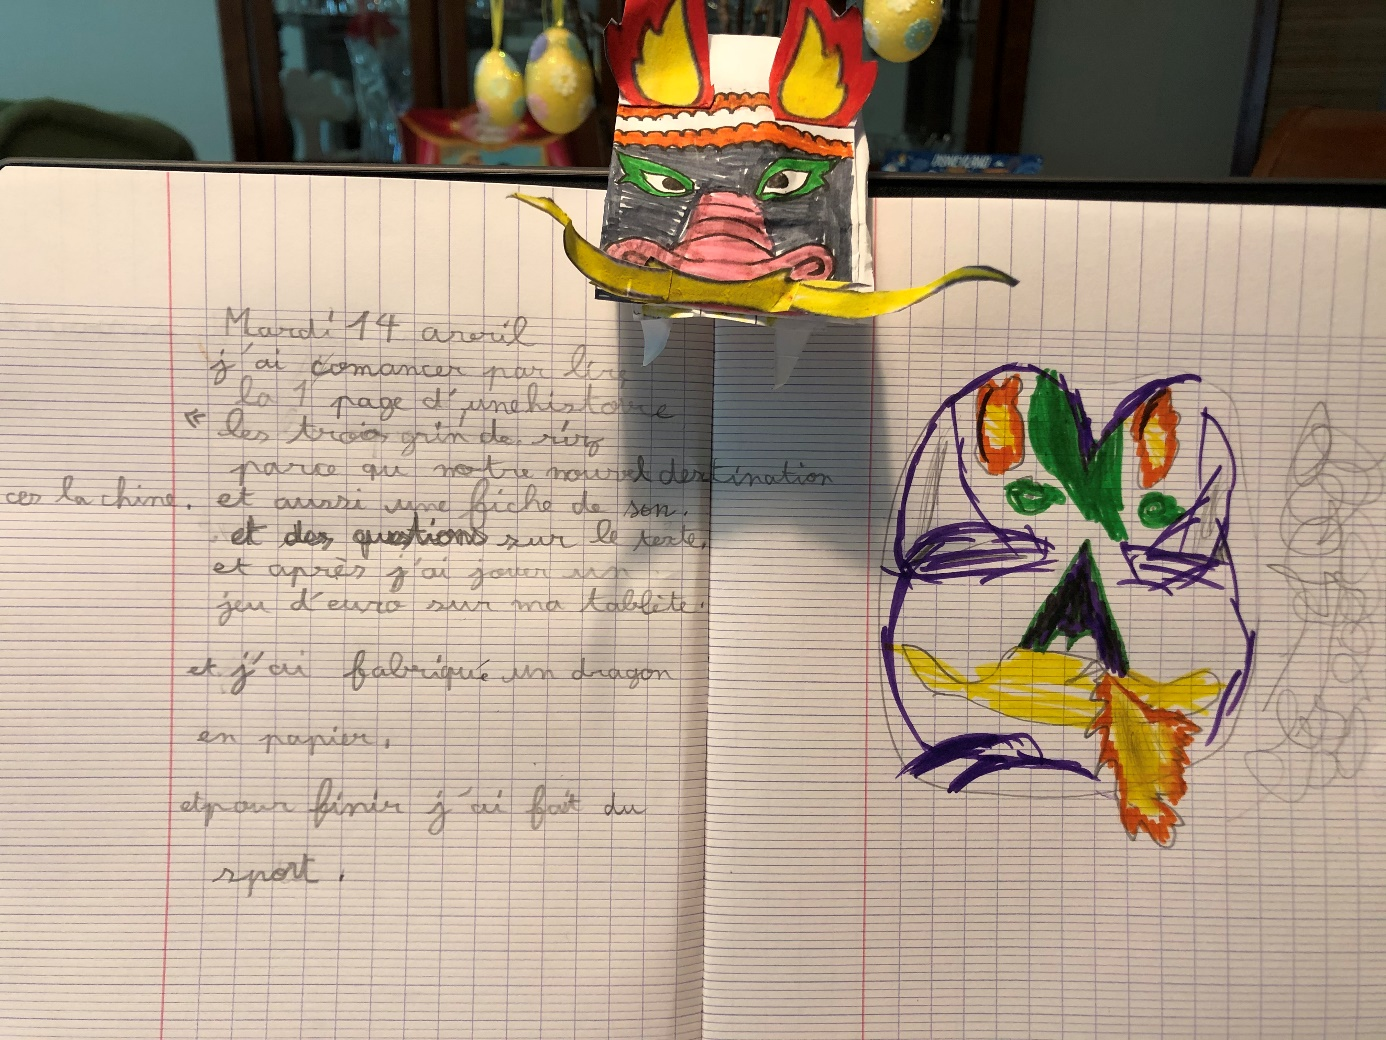 DISNEYLAND
Mardi 14 avril
j'ai comancer par lir
la 1 page d'une histoire
« les trois grin de riz
parce qu notre nouvel destination
ces la chine. et aussi une fiche de son.
et des questions sur le texte.
et après j'ai jouer un
jeu d'euro sur ma tablète.
et j'ai fabriqué un dragon
en papier.
et pour finir j'ai fait du
sport.